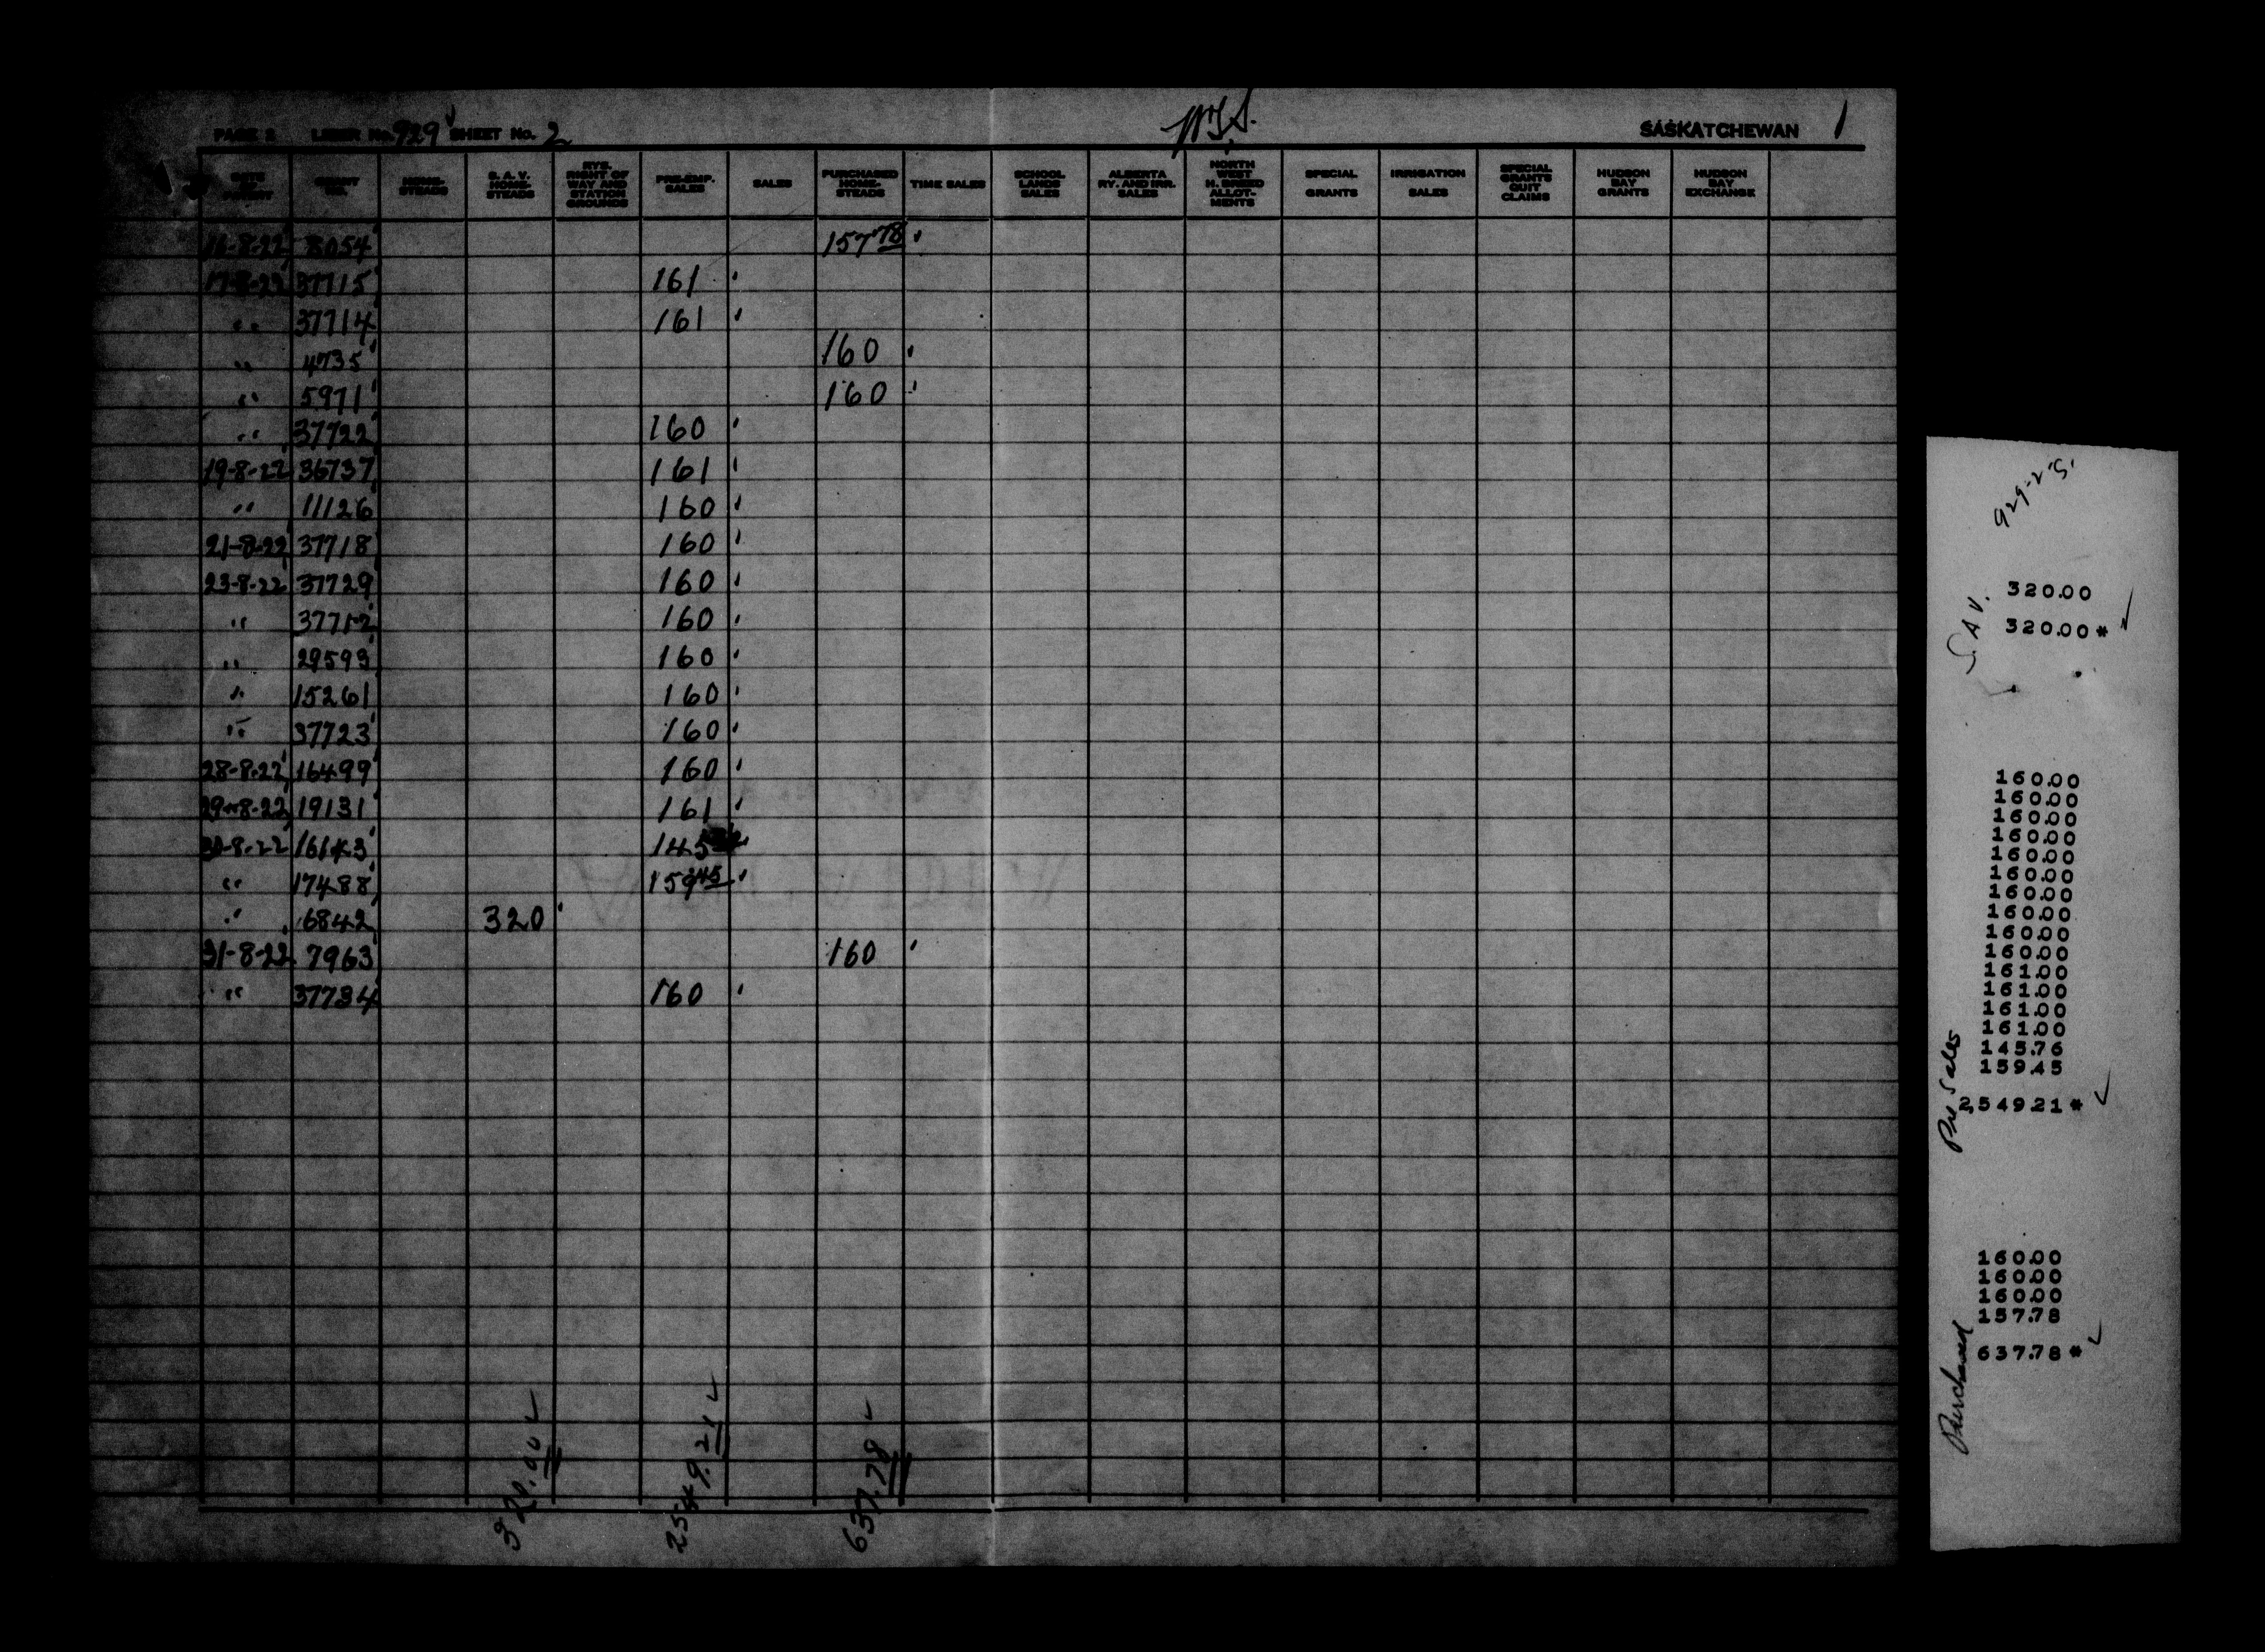 PAGE 2 LIBER No. 929 SHEET No. 2 SASKATCHEWAN 1
DATE OF PATENT GRANT NO. HOME-STEADS S. A. V. HOME-STEADS RYS. RIGHT OF WAY AND STATION GROUNDS PRE-EMP. SALES SALES PURCHASED HOME-STEADS TIME SALES SCHOOL LANDS SALES ALBERTA RY. AND IRR. SALES NORTH WEST H. BREED ALLOT-MENTS SPECIAL GRANTS IRRIGATION SALES SPECIAL GRANTS QUIT CLAIMS HUDSON BAY GRANTS HUDSON BAY EXCHANGE
16-8-22 8054 157 78
17-8-22 37715 161
" 37714 161
" 4735 160
" 5971 160
" 37722 160
19-8-22 36737 161
" 11126 160
21-8-22 37718 160
23-8-22 37729 160
" 37712 160
" 29593 160
" 15261 160
" 37723 160
28-8-22 16499 160
29-8-22 19131 161
16143 145
" 17488 159 45
" 6842 320
31-8-22 7963 160
" 37734 160
320.00 2549.21 637.78
929-2 S.
S.A.V.
320.00
320.00*
Pre Sales
160.00
160.00
160.00
160.00
160.00
160.00
160.00
160.00
160.00
160.00
161.00
161.00
161.00
161.00
145.76
159.45
2,549.21*
Purchased
160.00
160.00
160.00
157.78
637.78*